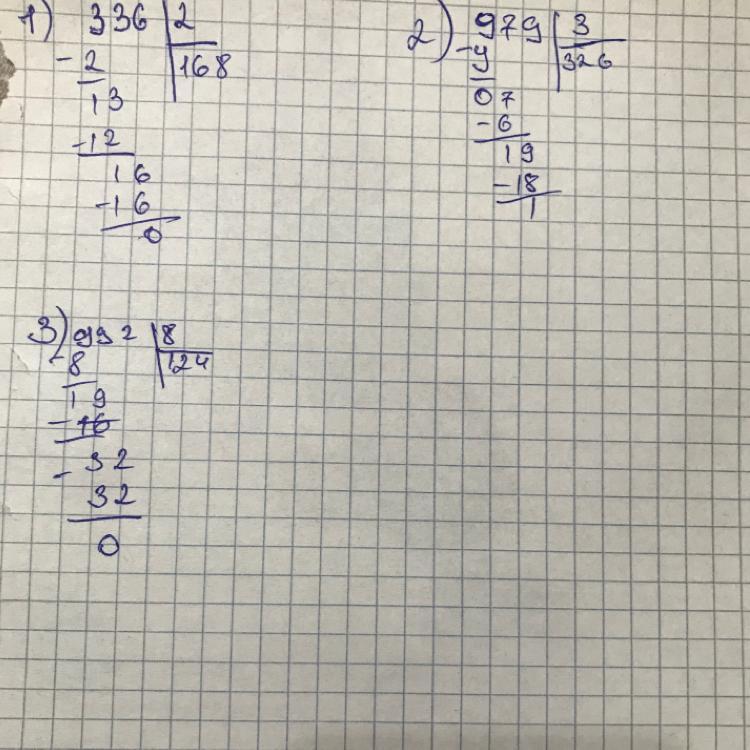 1) 336 | 2
- 2 | 168
13
-12
16
-16
0
2) 979 | 3
-9 | 326
07
-6
19
-18
1
3) 992 | 8
- 8 | 124
19
-16
- 32
32
0